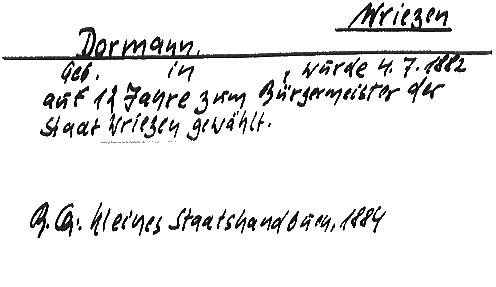 Wriezen
Dormann.
Geb. in , wurde 4.7.1882
auf 12 Jahre zum Bürgermeister der
Stadt Wriezen gewählt.
Kleines Staatshandbuch, 1884